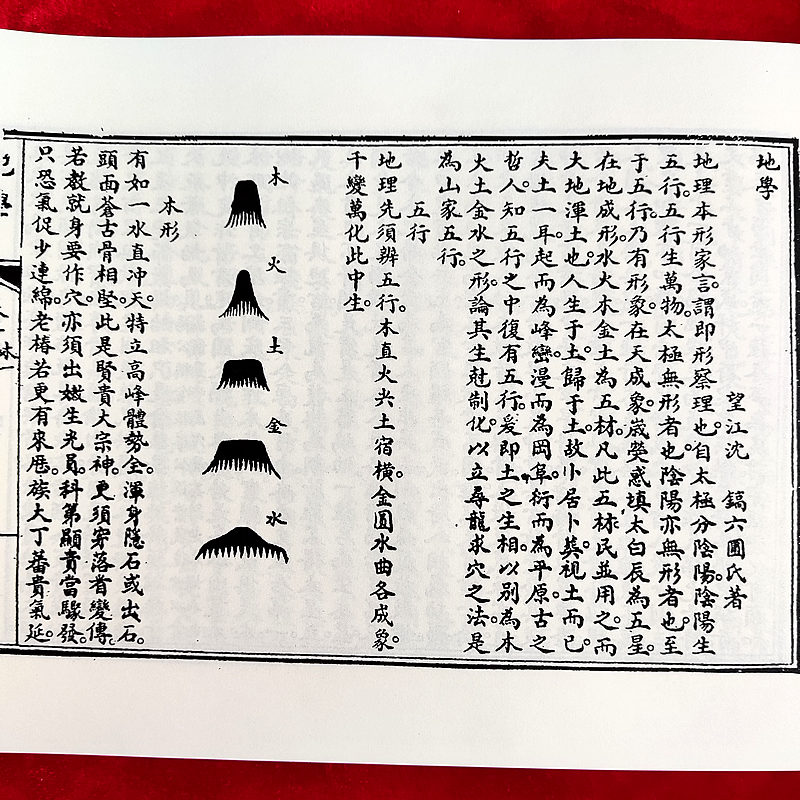 地學
望江沈　鎬六圃氏著
地理本形家言。謂即形察理也。自太極分陰陽。陰陽生
五行。五行生萬物。太極無形者也。陰陽亦無形者也。至
于五行。乃有形象。在天成象。歲熒惑填太白辰為五星。
在地成形。水火木金土為五材。凡此五材。民並用之。而
大地渾土也。人生于土。歸于土。故卜居卜葬。視土而已。
夫土一耳。起而為峰巒。漫而為岡阜。衍而為平原。古之
哲人。知五行之中復有五行。爰即土之生相。以別為木
火土金水之形。論其生尅制化。以立尋龍求穴之法。是
為山家五行。
五行
地理先須辨五行。木直火尖土宿橫。金圓水曲各成象。
千變萬化此中生。
木
火
土
金
水
木形
有如一水直冲天。特立高峰體勢全。渾身隱石或出石。
頭面蒼古骨相堅。此是賢貴大宗神。更須穿落省變傳。
若教就身要作穴。亦須出嫩生光員。科第顯貴當驟發。
只恐氣促少連綿。老樁若更有來厯。族大丁蕃貴氣延。